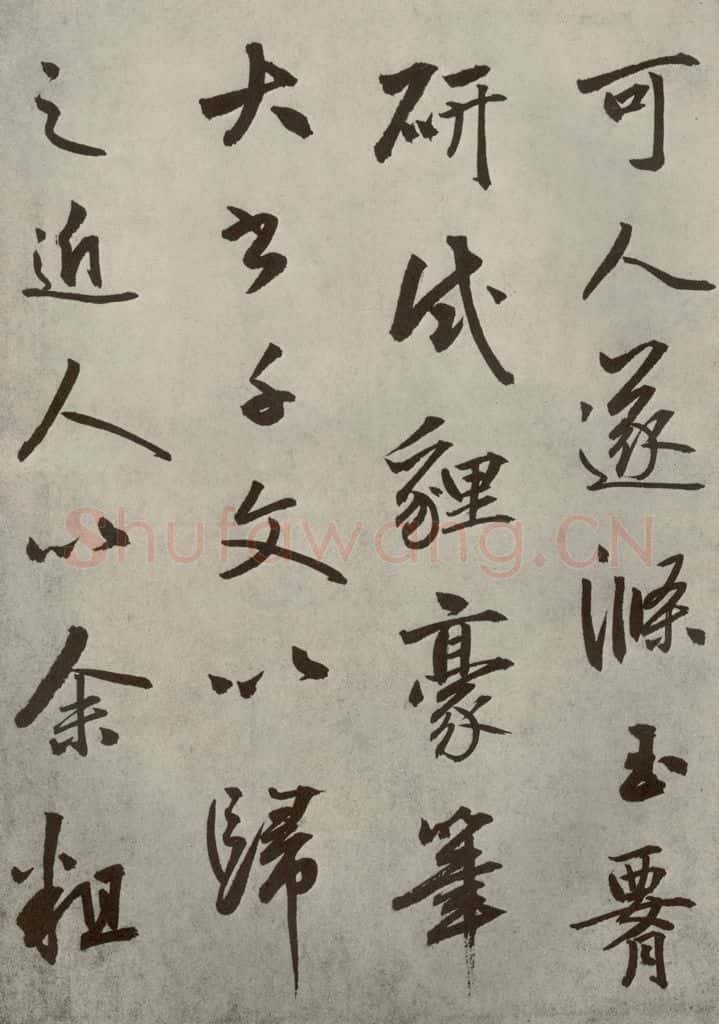 可人遂滌玉腰
研試貍豪筆
大書千文以歸
之近人以余粗
Shufawang.CN